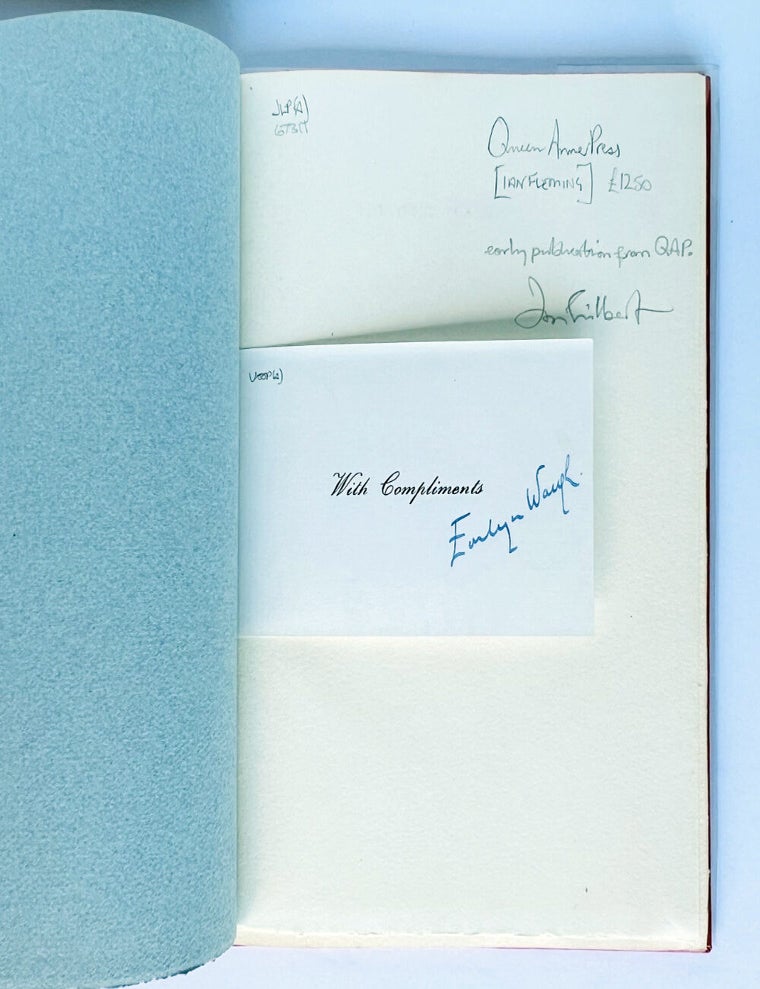 JLP(A)
Queen Anne Press
[IAN FLEMING] £1250
early publication from QAP.
With Compliments
Evelyn Waugh.